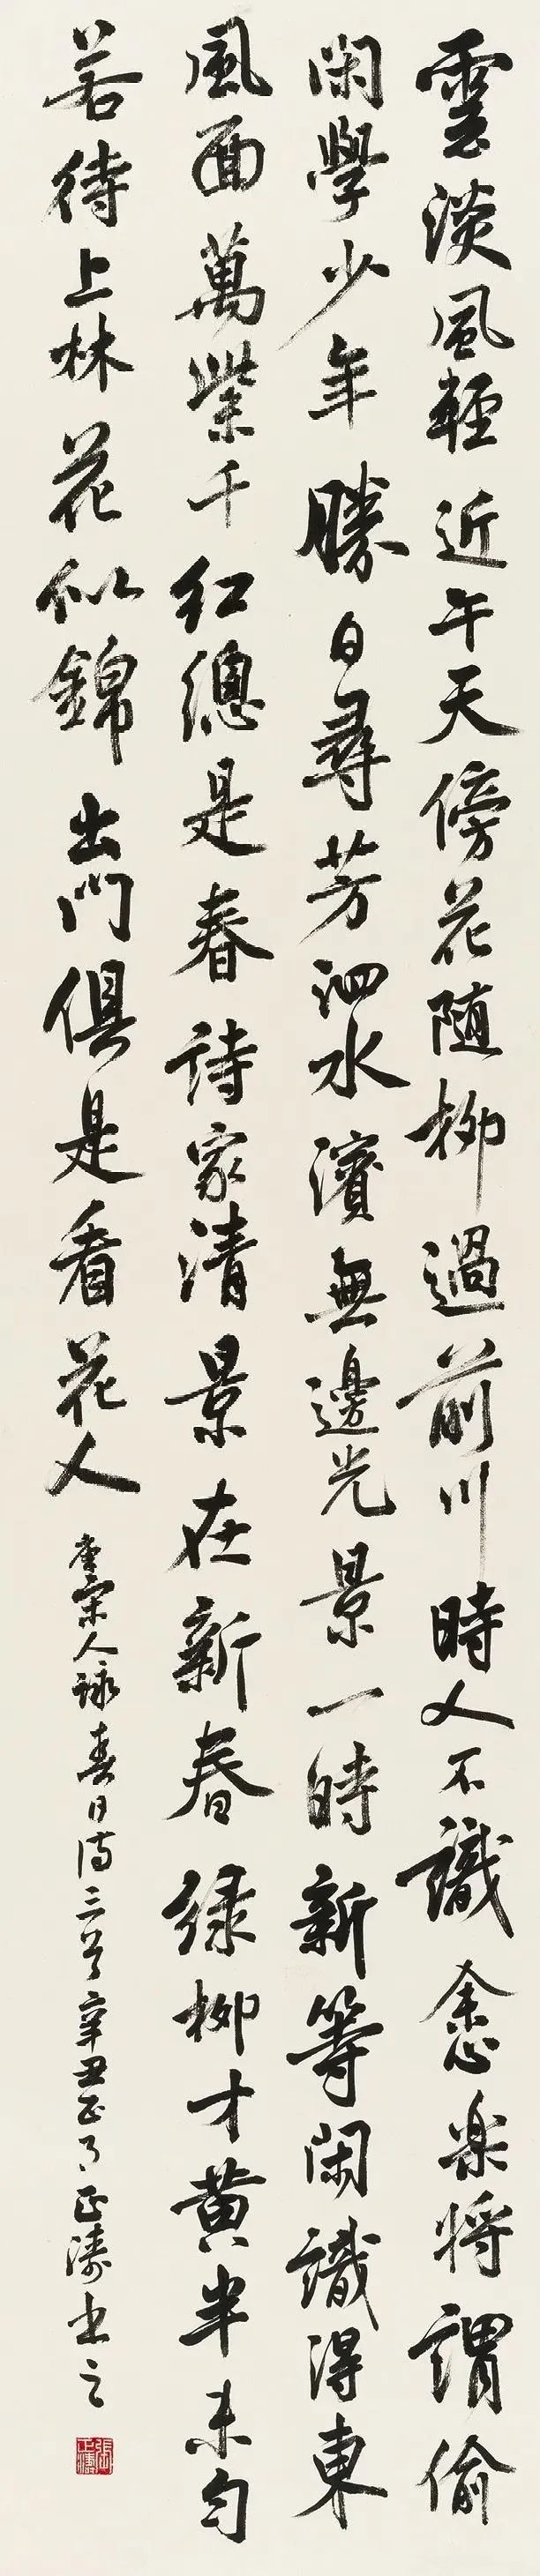 雲淡風輕近午天傍花随柳過前川時人不識余心楽将謂偷
閑學少年勝日尋芳泗水濱無邊光景一時新等閑識得東
風面萬紫千红總是春诗家清景在新春绿柳才黄半未匀
若待上林花似錦出門俱是看花人
唐宋人詠春日诗三首辛丑正月正濤书之
張正濤